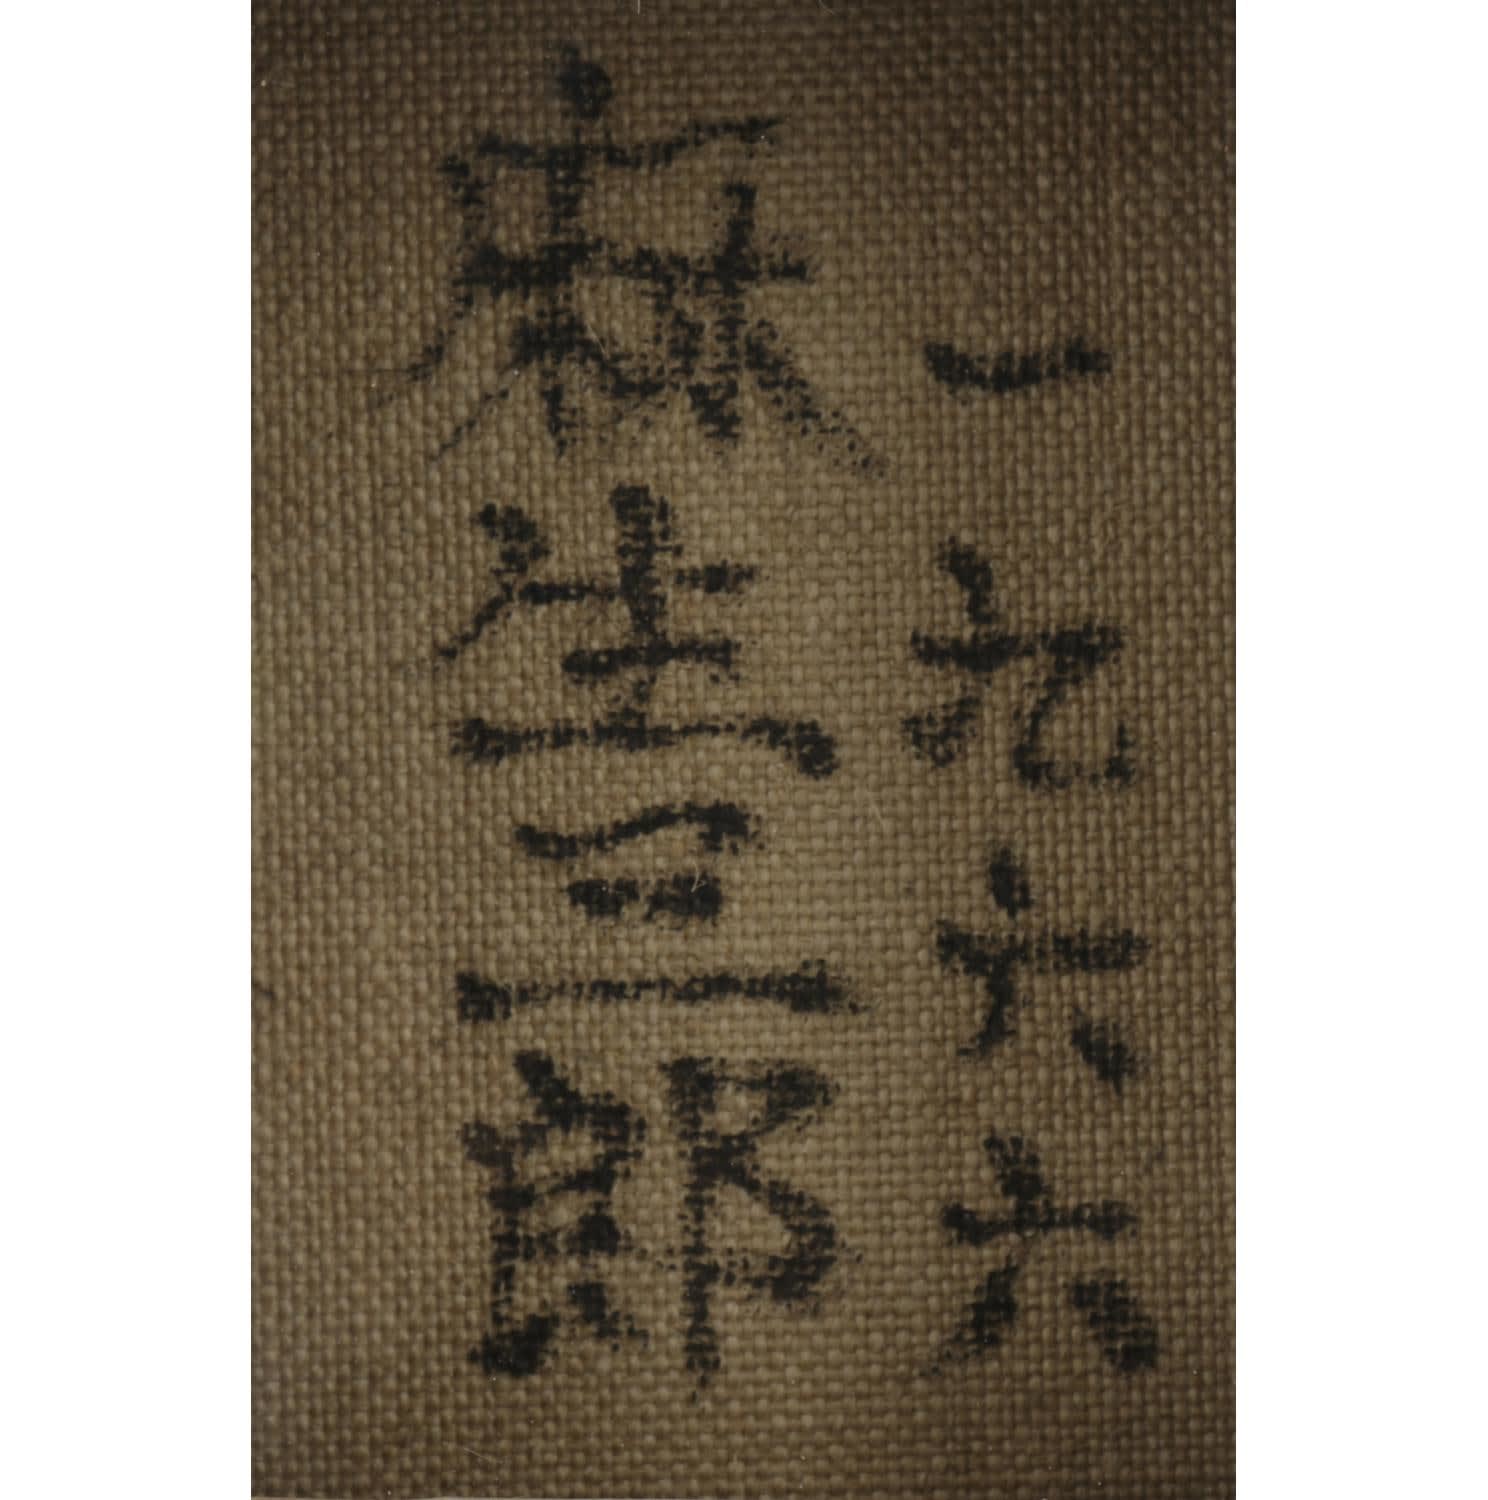 一九六六
麻生三郎